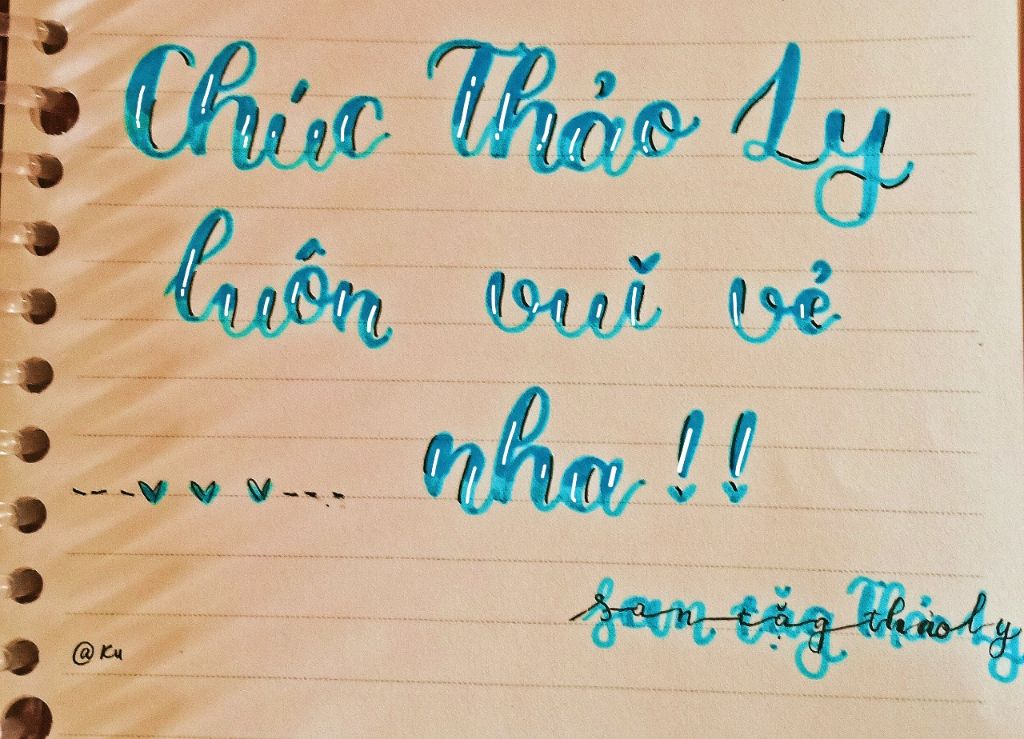 Chúc Thảo Ly
luôn vui vẻ
nha!!
san tặg thảo ly
@Ku